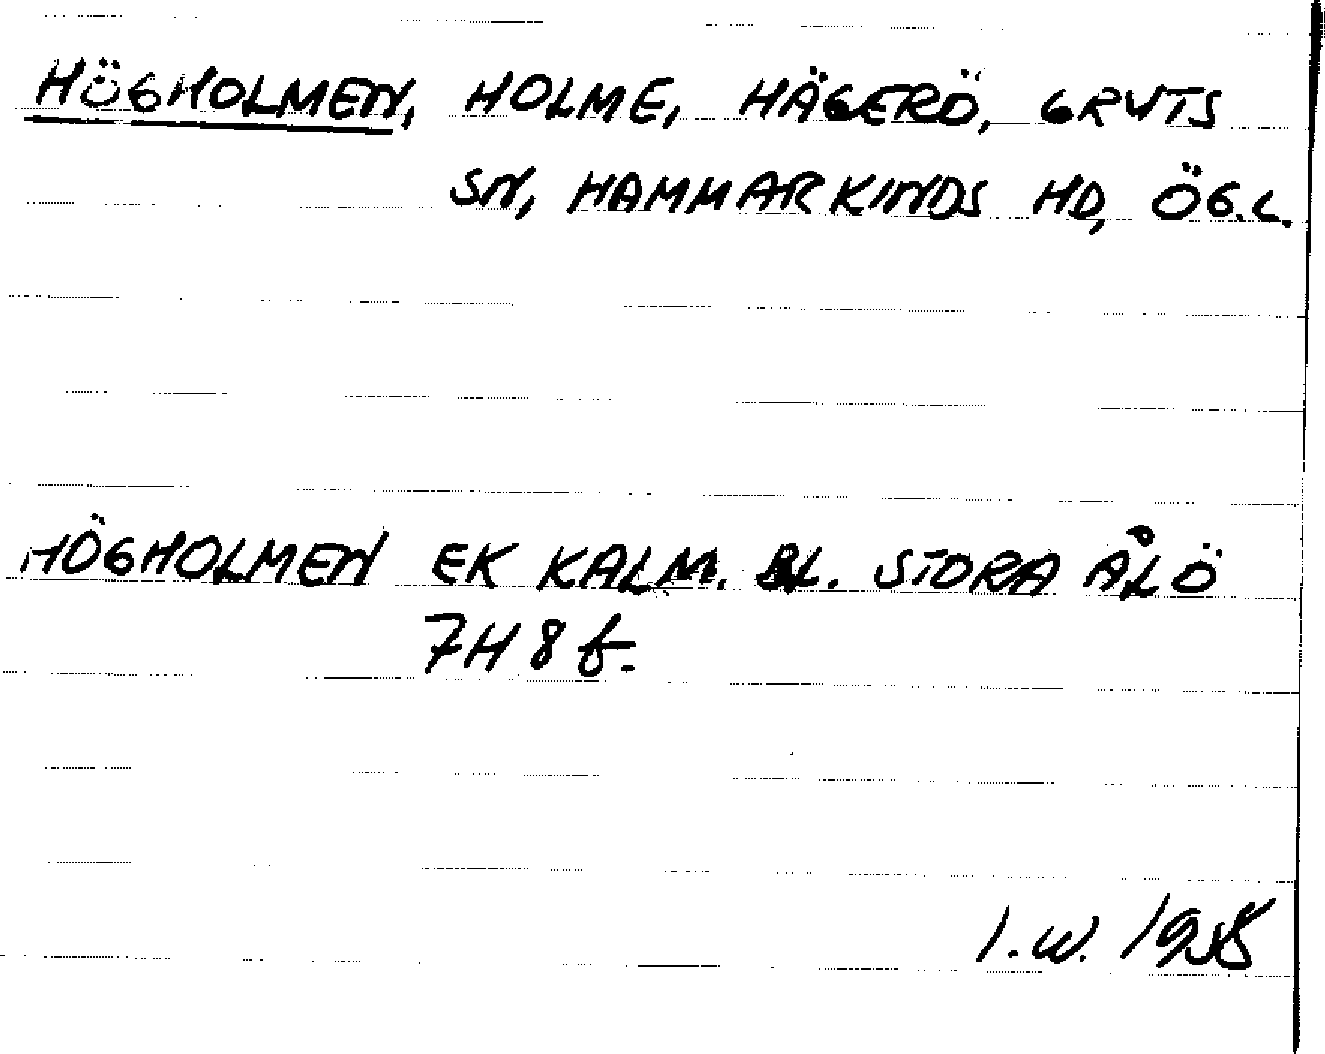 HÖGHOLMEN, HOLME, HÄGERÖ, GRYTS
SN, HAMMARKINDS HD, ÖG.L.
HÖGHOLMEN EK KALM. BL. STORA ÅLÖ
7H 8 f.
I.W. 1958